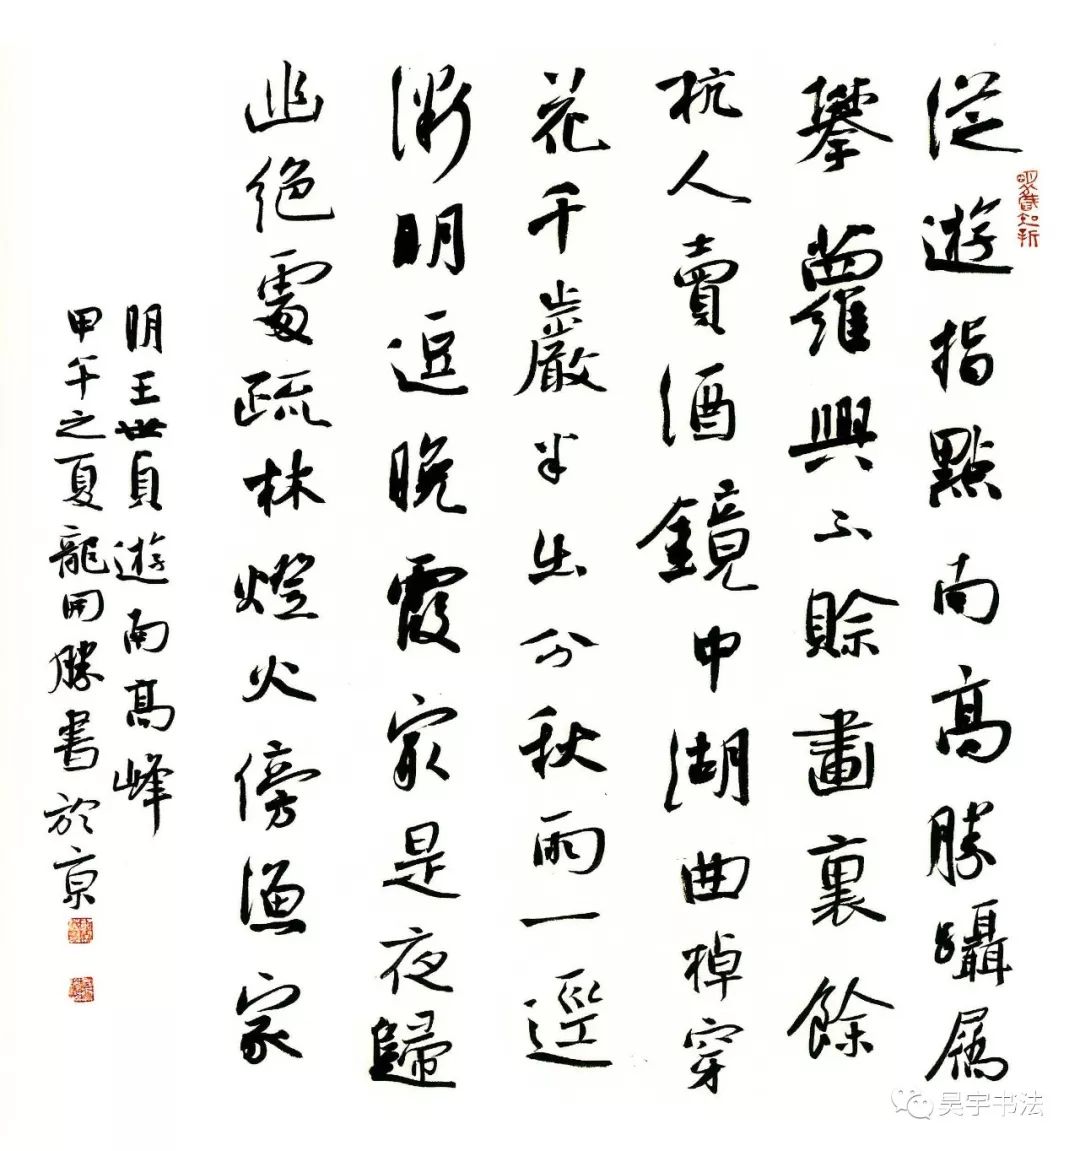 從遊指點南高勝躡屩
攀蘿興不賒畫裏餘
杭人賣酒鏡中湖曲棹穿
花千巖半出分秋雨一逕
微明逗晚霞冣是夜歸
幽絕處疏林燈火傍漁家
明王世貞遊南高峰
甲午之夏龍開勝書於京
吴宇书法